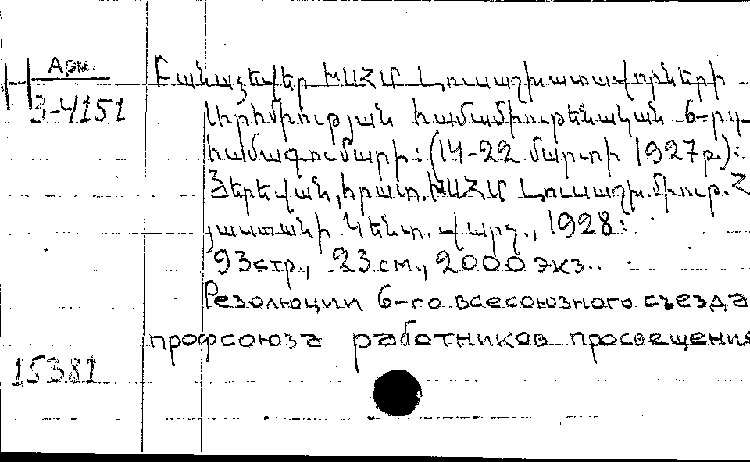 Арм.
3-4151
Բանաձեվեր ԽՍՀՄ Լուսաշխատավորների
Միության համամիութենական 6-րդ
համագումարի: (14-22 մարտի 1927թ.):
Յերեվան, հրատ. ԽՍՀՄ Լուսաշխ. միութ. Հ
յաստանի Կենտ. վարչ., 1928:
93 стр., 23 см., 2000 экз..
Резолюции 6-го всесоюзного съезда
профсоюза работников просвещения
15381